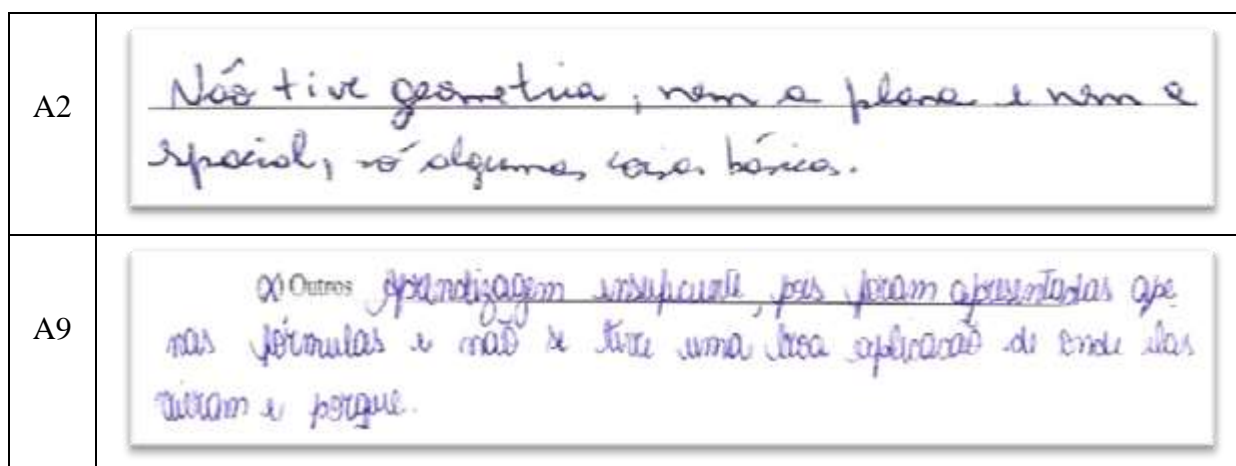 A2
Não tive geometria, nem a plana e nem a
espacial, só algumas coisas básicas.
A9
(x) Outros Aprendizagem insuficiente, pois foram apresentadas ape
nas fórmulas e não se teve uma boa aplicação de onde elas
vieram e porque.